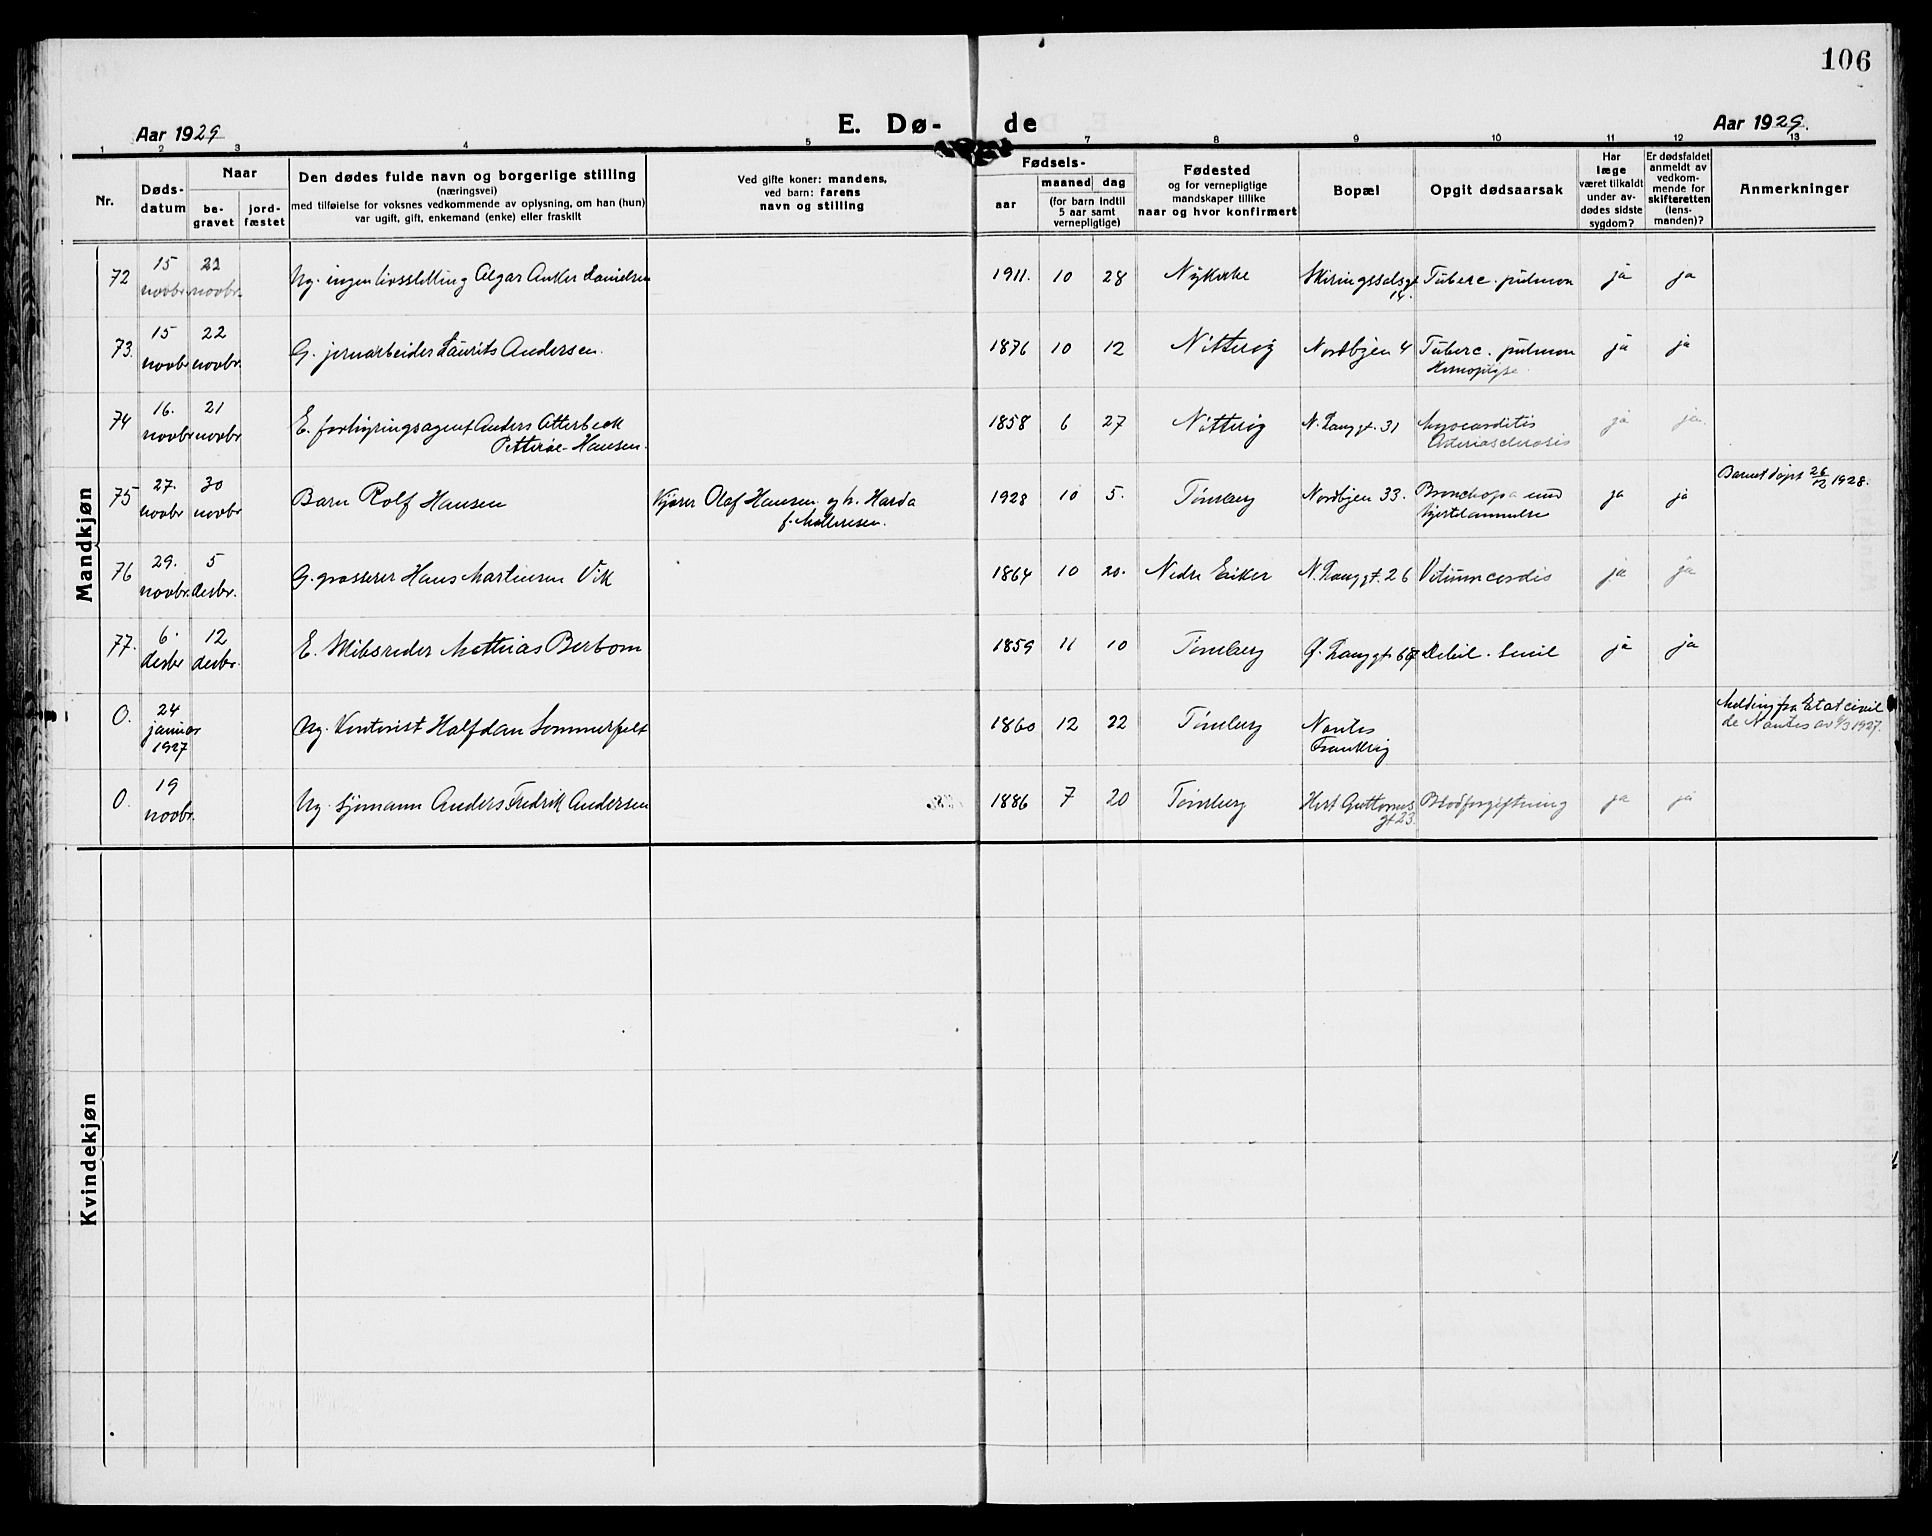 106
Aar 1929
E. Dø-
de
Aar 1929.
1 2 3 4 5 7 8 9 10 11 12 13
Nr.
Døds-
datum
Naar
be-
gravet
jord-
fæstet
Den dødes fulde navn og borgerlige stilling
(næringsvei)
med tilføielse for voksnes vedkommende av oplysning, om han (hun)
var ugift, gift, enkemand (enke) eller fraskilt
Ved gifte koner: mandens,
ved barn: farens
navn og stilling
Fødsels-
aar
maaned dag
(for barn indtil
5 aar samt
vernepligtige)
Fødested
og for vernepligtige
mandskaper tillike
naar og hvor konfirmert
Bopæl
Opgit dødsaarsak
Har
læge
været tilkaldt
under av-
dødes sidste
sygdom?
Er dødsfaldet
anmeldt av
vedkom-
mende for
skifteretten
(lens-
manden)?
Anmerkninger
Mandkjøn
72 15 novbr. 22 novbr. Ug. ingen livsstilling Algar Anker Danielsen 1911. 10 28 Nykirke Skiringssalsgt 14. Tuberc. pulmon ja ja
73. 15 novbr 22 novbr. G. jernarbeider Laurits Andersen. 1876 10 12 Nøtterøy Nordbyen 4 Tuberc. pulmon Hemoptyse ja ja
74 16. novbr 21 novbr E. forhyringsagent Anders Otterbeck
Petterøe-Hansen. 1858 6 27 Nøtterøy N. Langgt. 31 Myocarditis
Arteriosclerosis ja ja.
75 27. novbr 30 novbr Barn Rolf Hansen Kjører Olaf Hansen og h. Harda
f. 1928 10 5. Tønsberg Nordbyen 33. Bronchop
ja ja Barnet døpt 26/12 1928.
76 29. novbr. 5 desbr. G. grosserer Hans Martinsen Vik 1864 10 20. Nedre Eiker N. Langgt. 26 Vitium cordis ja ja
77. 6. desbr 12 desbr. E. Skibsreder Mathias Berbom 1859 11 10 Tønsberg Ø. Langgt 68 Debil. senil ja ja
0. 24 januar 1927 Ug. Kontorist Halfdan Sommerfelt 1860 12 22 Tønsberg Nantes
Frankrig Melding fra Etat civil
de Nantes av 6/3 1927.
0. 19 novbr. Ug. Sjømann Anders Fredrik Andersen 1886 7 20 Tønsberg Hert. Guttorms
gt 23. Blodforgiftning ja ja
Kvindekjøn